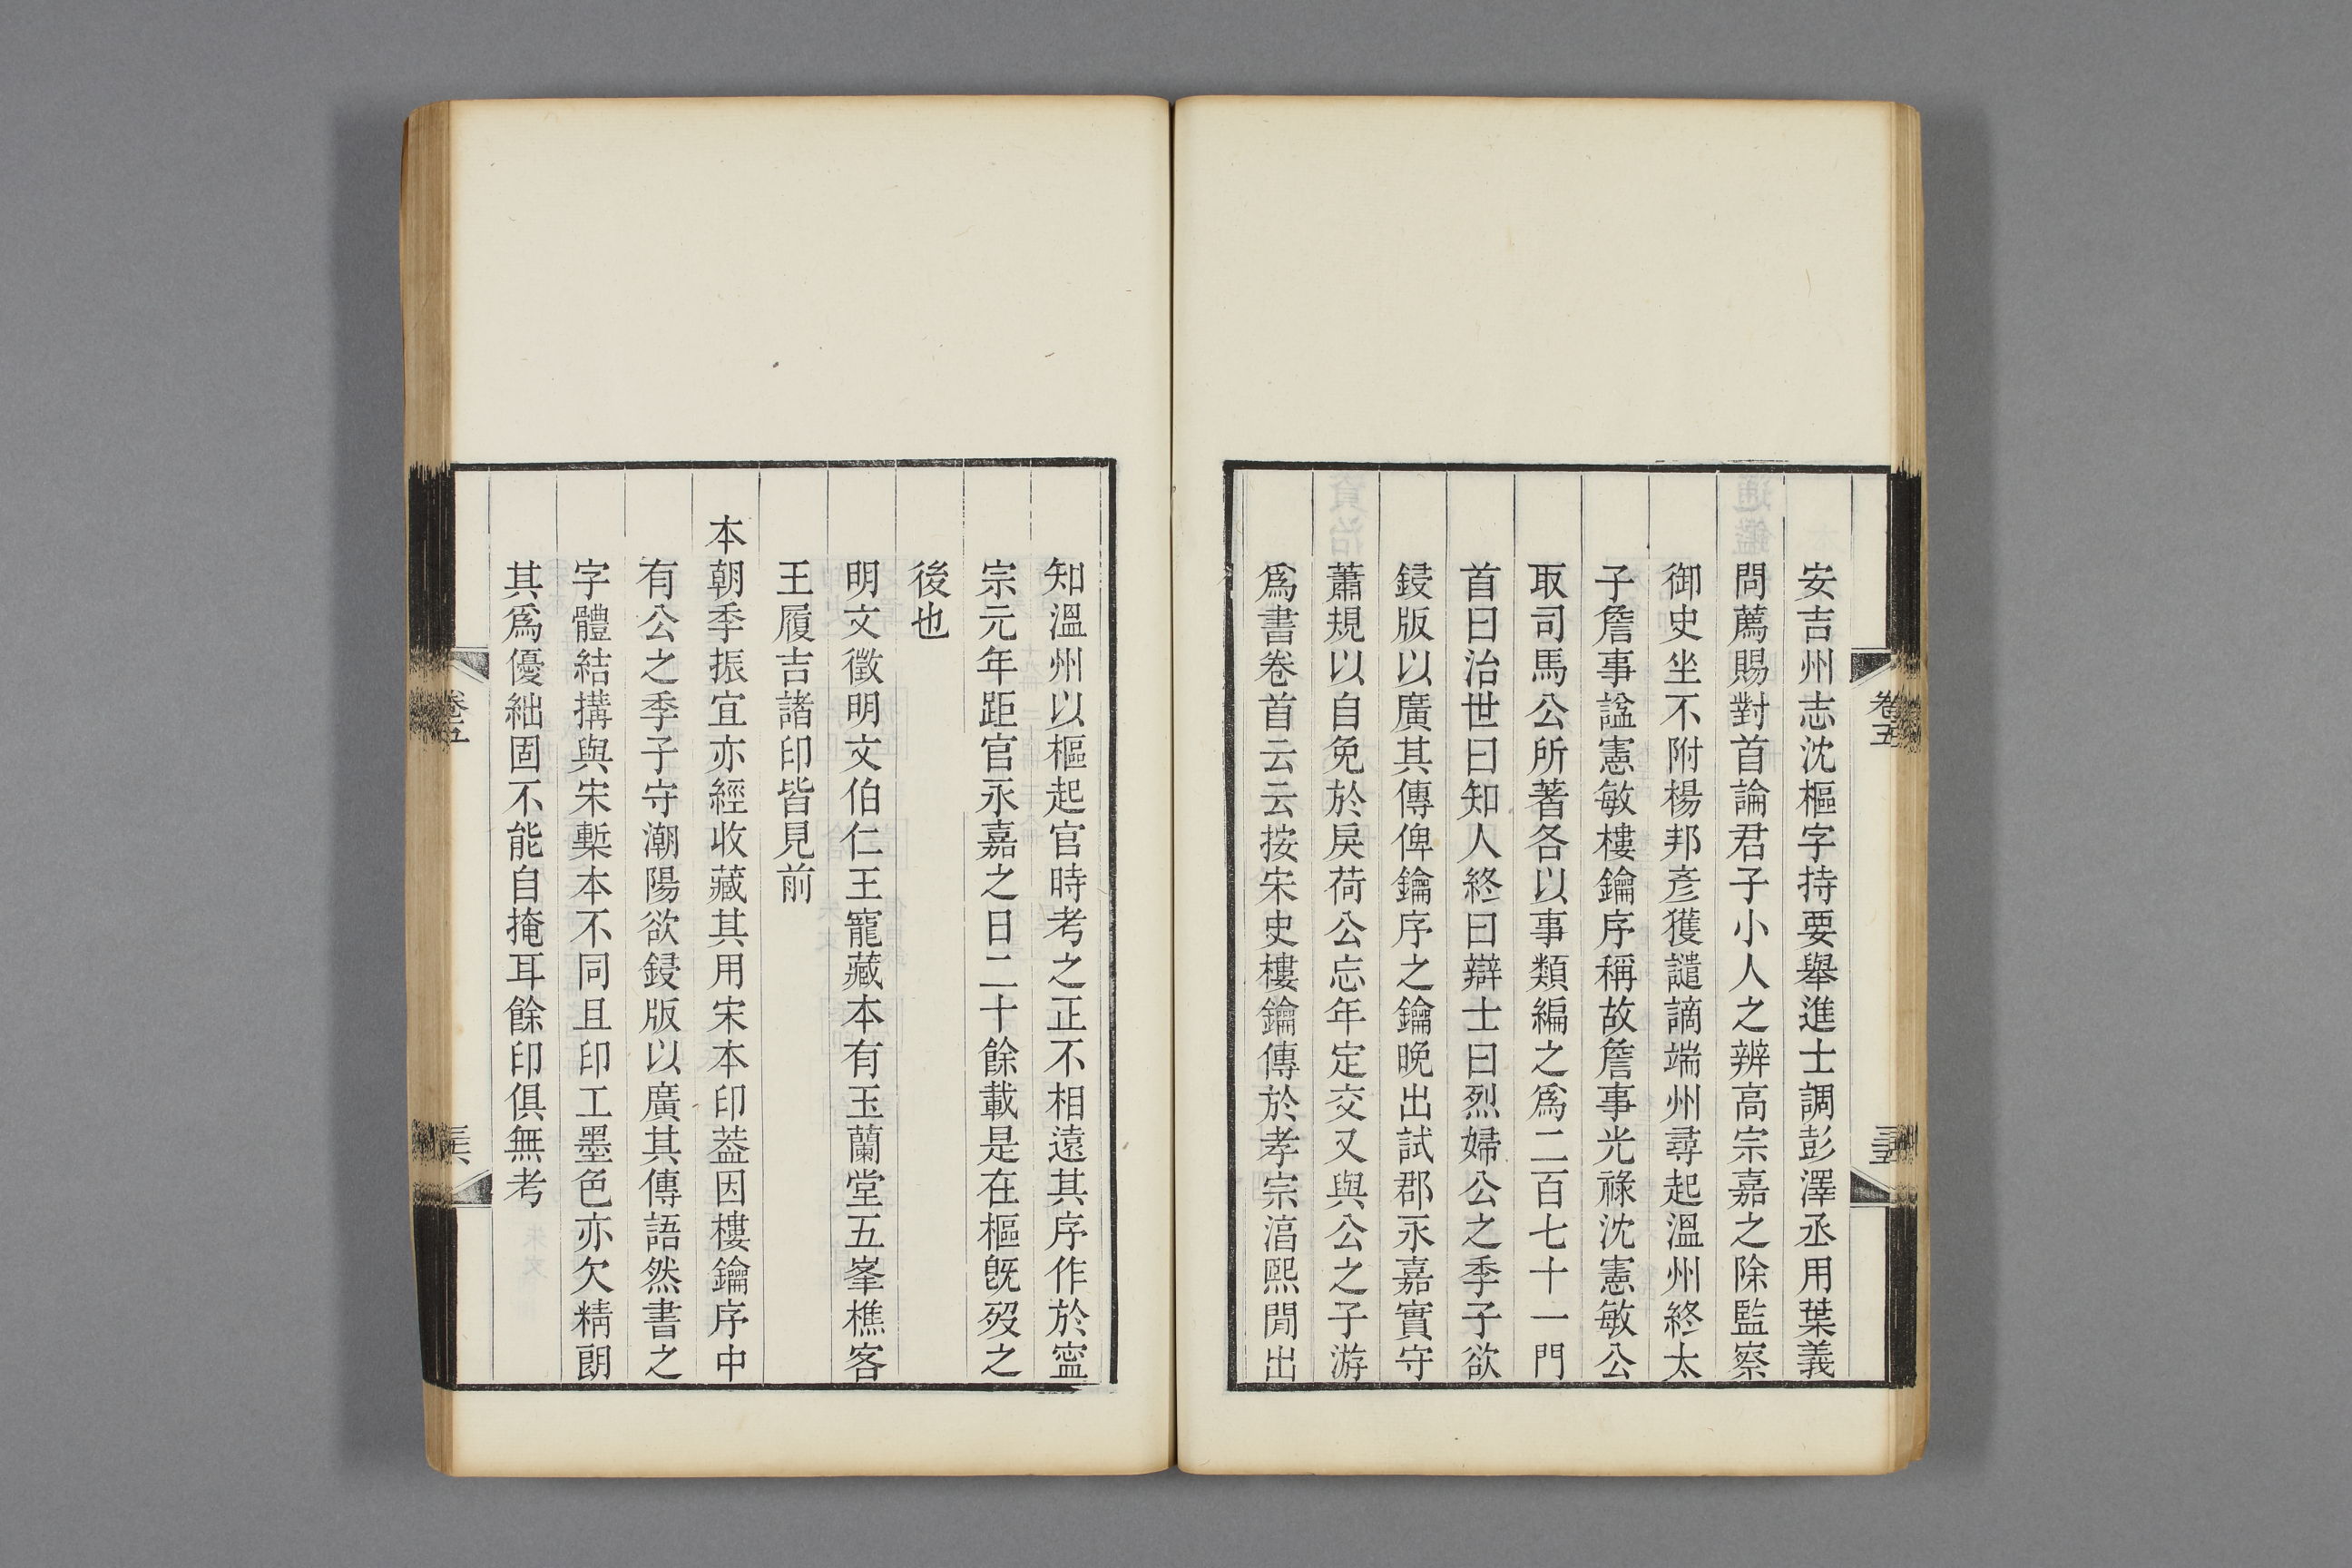 卷五
三五
安吉州志沈樞字持要舉進士調彭澤丞用葉義
問薦賜對首論君子小人之辨高宗嘉之除監察
御史坐不附楊邦彥獲譴謫端州尋起溫州終太
子詹事諡憲敏樓鑰序稱故詹事光祿沈憲敏公
取司馬公所著各以事類編之爲二百七十一門
首曰治世曰知人終曰辯士曰烈婦公之季子欲
鋟版以廣其傳俾鑰序之鑰晚出試郡永嘉實守
蕭規以自免於戾荷公忘年定交又與公之子游
爲書卷首云云按宋史樓鑰傳於孝宗湻熙閒出
知溫州以樞起官時考之正不相遠其序作於寍
宗元年距官永嘉之日二十餘載是在樞旣歿之
後也
明文徵明文伯仁王寵藏本有玉蘭堂五峯樵客
王履吉諸印皆見前
本朝季振宜亦經收藏其用宋本印葢因樓鑰序中
有公之季子守潮陽欲鋟版以廣其傳語然書之
字體結搆與宋槧本不同且印工墨色亦欠精朗
其爲優絀固不能自掩耳餘印俱無考
卷五
三六